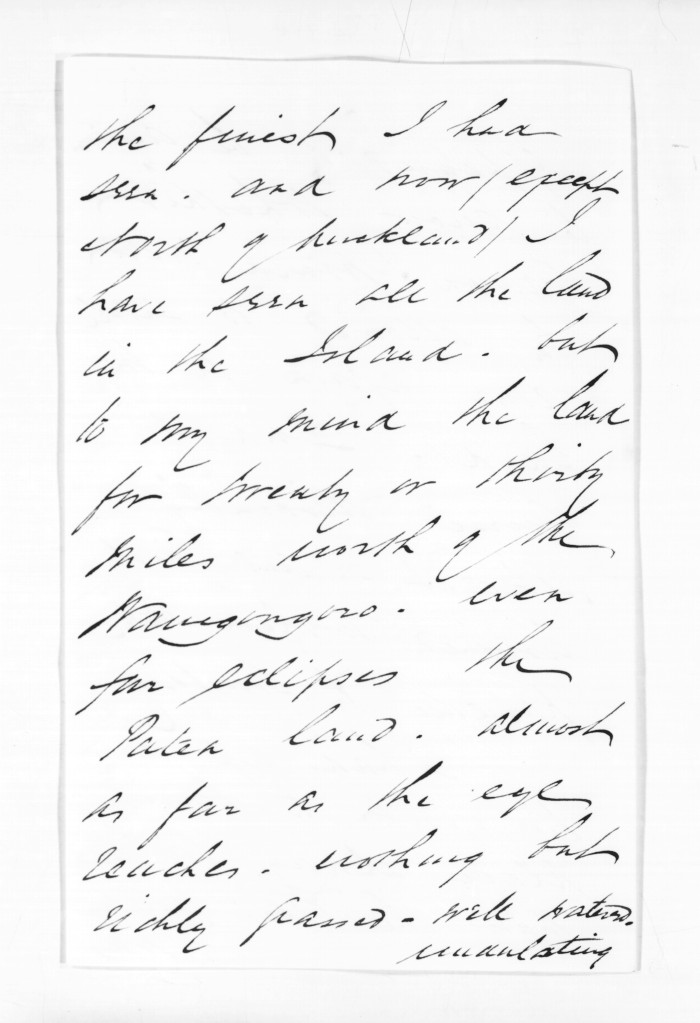 the finest I had
seen. and now (except
North of Auckland) I
have seen all the land
in the Island. but
to my mind the land
for twenty or thirty
miles north of the
Waiegongoro. even
far eclipses the
Patea land. almost
as far as the eye
reaches. nothing but
richly grassed - well watered.
undulating